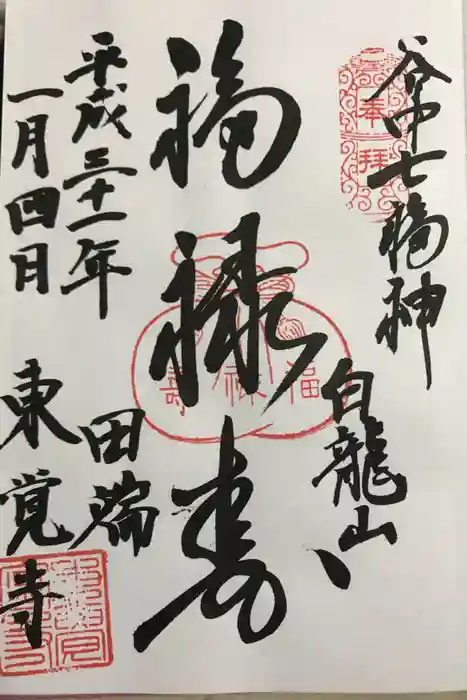 谷中七福神
奉拝
白龍山
福禄寿
福禄寿
平成三十一年
一月四日
田端
東覚寺